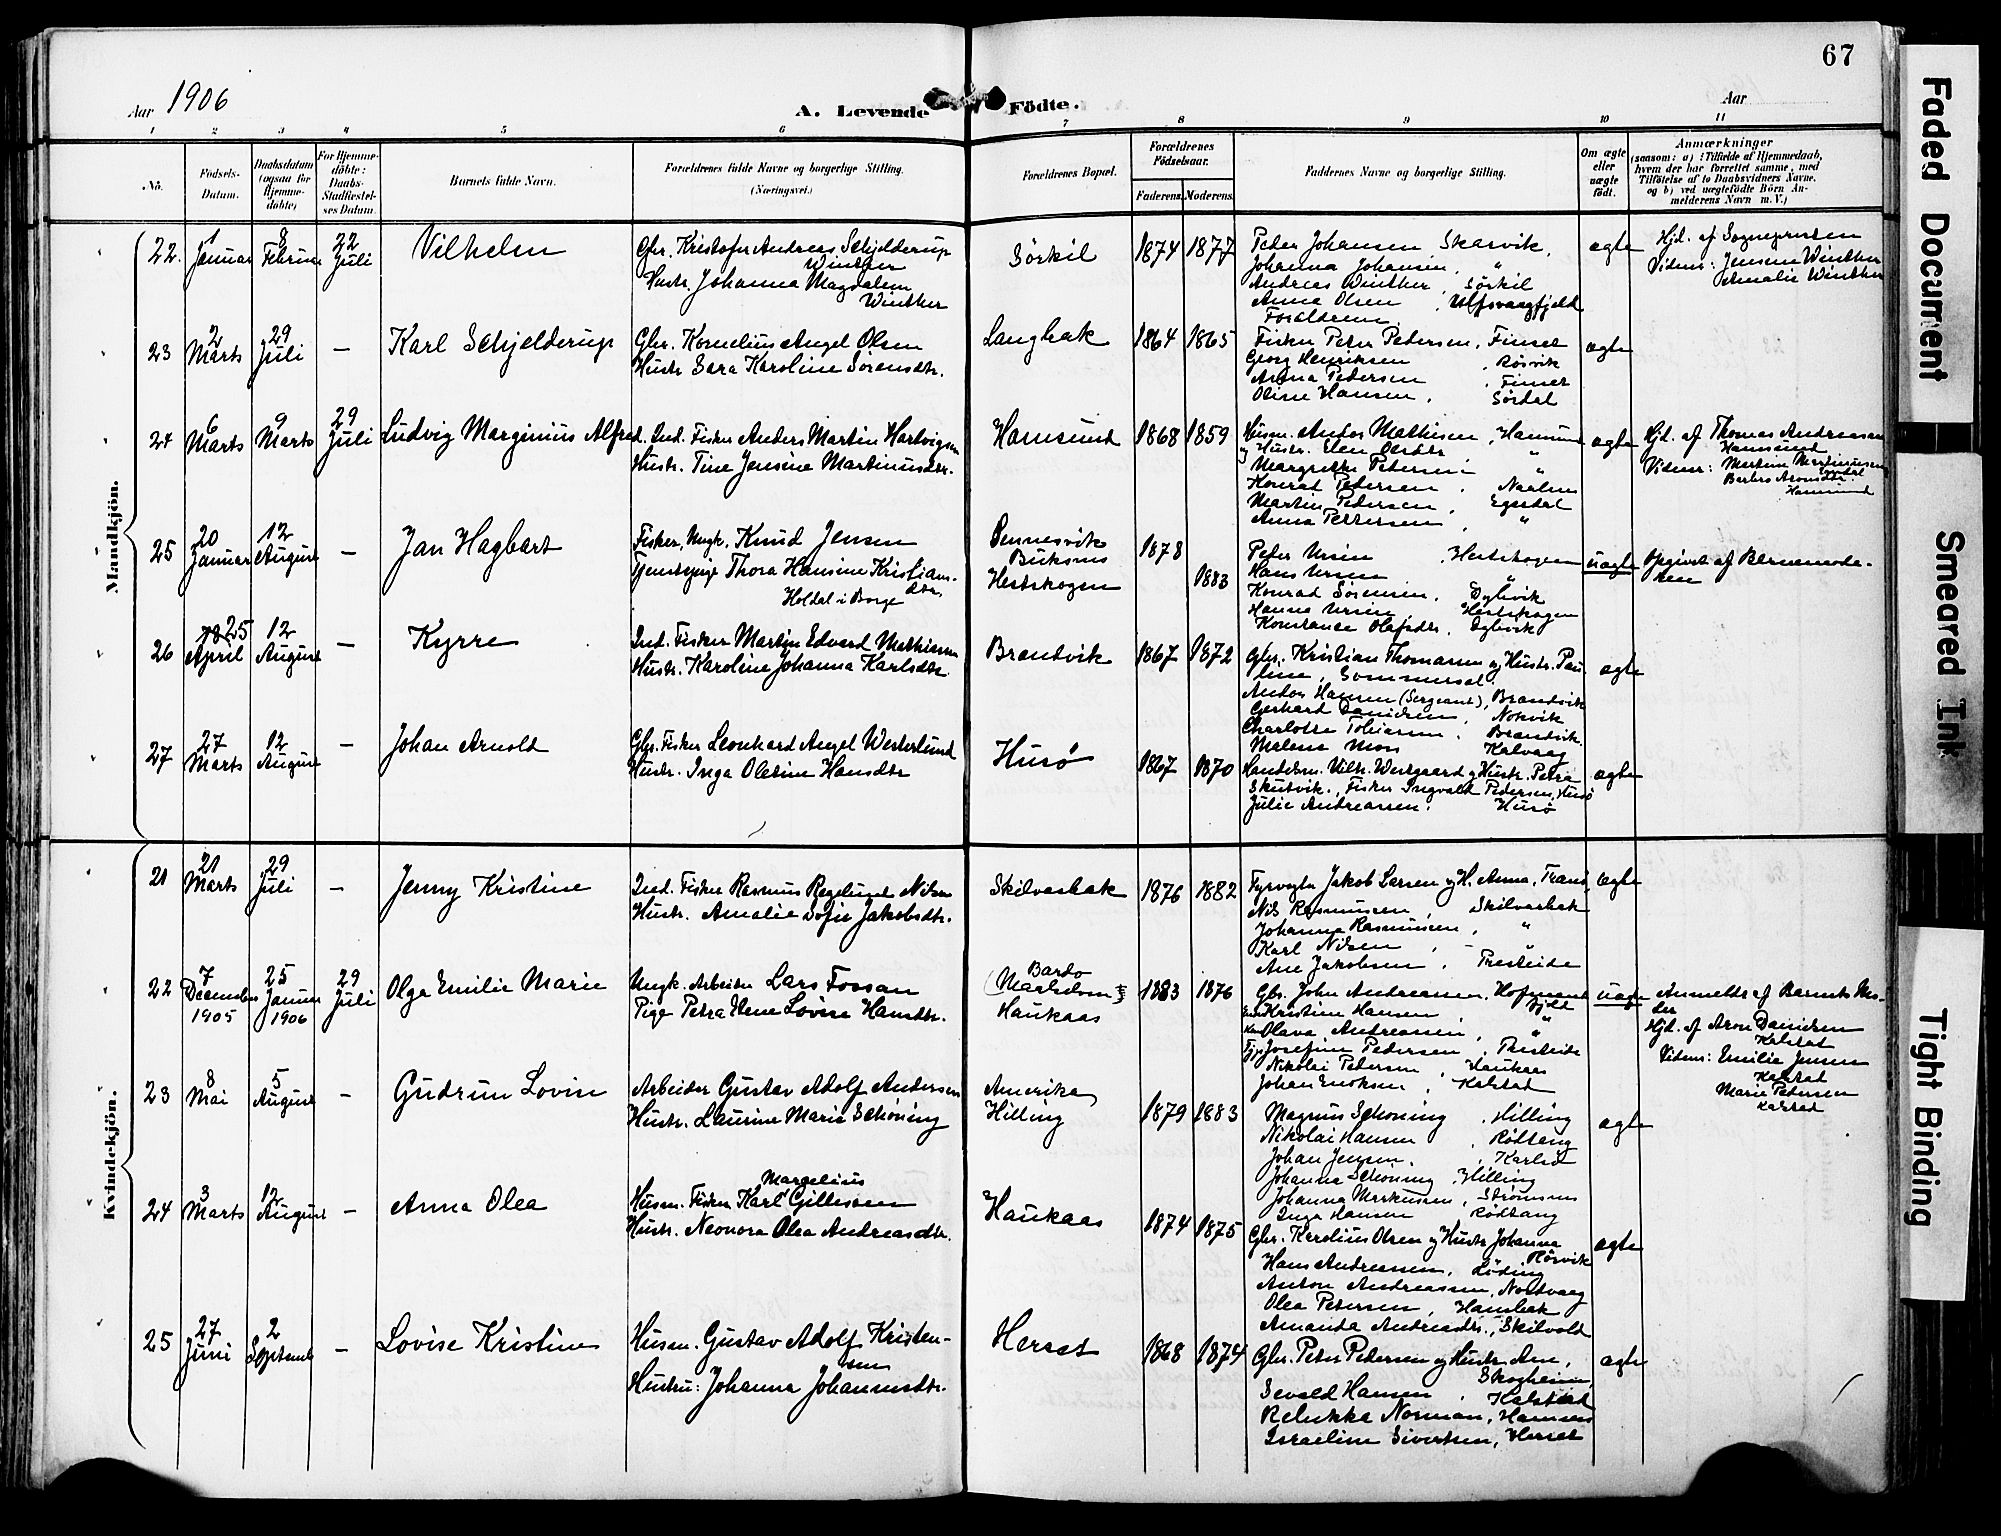 67
Aar 1906
A. Levende Födte.
Aar
1 2 3 4 5 6 7 8 9 10 11
No.
Födsels-
Datum.
Daabsdatum
(ogsaa for
Hjemme-
döbte)
For Hjemme-
döbte:
Daabs-
Stadfæstel-
ses Datum.
Barnets fulde Navn.
Forældrenes fulde Navne og borgerlige Stilling.
(Næringsvei.)
Forældrenes Bopæl.
Forældrenes
Födselsaar.
Faderens. Moderens.
Faddernes Navne og borgerlige Stilling.
Om ægte
eller
uægte
födt.
Anmærkninger
(saasom: a) i Tilfælde af Hjemmedaab,
hvem der har forrettet samme, med
Tilföielse af to Daabsvidners Navne,
og b) ved uægtefödte Börn An-
melderens Navn m. V.)
Mandkjön.
22.
1
Januar
8
Februar
22
Juli
Vilhelm
Gbr. Kristofer Andreas Schjelderup
Winther
Hustr. Johanna Magdalena
Winther
Sörkil
1874 1877
Peder Johansen Skarvik,
Johanna Johansen, "
Andreas Winther, Sörkil
Anna Olsen, Ulfsvaagfjeld
Forældrene
ægte
Hjd. af Sognepresten
Vidner: Jensine Winther
Amalie Winther
23
2
Marts
29
Juli
—
Karl Schjelderup
Gbr. Kornelius Angel Olsen
Hustr. Sara Karoline Sörensdtr.
Langbak
1864 1865
Fisker Peter Petersen, Finset
Georg Henriksen, Rösvik
Anna Pedersen, Finset
Oline Hansen, Sördal
ægte
24
6
Marts
9
Marts
29
Juli
Ludvig Marginius Alfred.
Ind. Fisker Anders Martin Hartvigsen
Hustr. Tine Jensine Martinusdtr.
Hamsund
1868 1859
Husm. Anders Mathisen, Hamsund
og Hustr. Elen Olsdtr "
Margrethe Petersen "
Konrad Pedersen,
Martin Pedersen, Egesdal
Anna Pettersen, "
ægte
Hjd. af Thomas Andreasen
Hamsund
Vidner: Martin Martinussen
Egesdal
Berbro Aronsdtr.
Hamsund
25
20
Januar
12
August
—
Jan Hagbart
Fisker, Ungk. Knud Jensen
Tjenstpige Thora Hansine Kristians-
dtr.
Holdal i Borge
Pennesvik
Buksnes
Hestskogen
1878
1883
Peter Ursin Hestskogen
Hans Ursin "
Konrad Sörensen, Dybvik
Hanna Ursin, Hestskogen
Konstanse Olafsdtr., Dybvik
uægte
Opgivet af Barnemode-
ren
26
25
April
12
August
—
Kyrre
Ind. Fisker Martin Edvard Mathisen
Hustr. Karoline Johanna Karlsdtr.
Brandvik
1867 1872
Gbr. Kristian Thomassen og Hustr. Pau-
line, Sommersel.
Anders Hansen (Sergeant), Brandvik
Gerhard Danielsen, Nokvik
Charlotte Tobiasen, Brandvik
Malene Moss Kalvaag
ægte
27
27
Marts
12
August
—
Johan Arnold
Gbr. Fisker Leonhard Angel Westerlund
Hustr. Inga Oletine Hansdtr
Husö
1867 1870
Handelsm. Vilh. Westgaard og Hustr. Petra
Skutvik., Fisker Ingvald Pedersen, Husö
Julie Andreassen. Husö
ægte
Kvindekjön.
21
21
Marts
29
Juli
—
Jenny Kristine
Ind. Fisker Rasmus Regelund Nilsen
Hustr. Amalie Sofie Jakobsdtr.
Skilvasbak
1876 1882
Fyrvogter Jakob Larsen og H. Anna, Tranö
Nils Rasmussen, Skilvasbak
Johanna Rasmussen, "
Karl Nilsen, "
Ane Jakobsen, Presteide
ægte
22
7
December
1905
25
Januar
1906
29
Juli
Olga Emilie Marie
Ungk. Arbeider Lars Fossan
Pige Petra Elene Lovise Hansdtr.
Bardo
(Markedom)
Haukaas
1883 1876
Gbr. John Andreassen, Hofmands
fjeld
Kristine Hansen, "
Olava Andreassen, "
Josefine Pedersen, Presteide
Nikolai Petersen, Haukaas
Johan Enoksen, Kalstad
uægte
Anmeldt af Barnets Mo-
der
Hjd. af Aron Danielsen
Kalstad
Vidner: Emilie Jensen
Kalstad
Marie Pedersen
Kalstad
23
8
Mai
5
August
—
Gudrun Lovise
Arbeider Gustav Adolf Andersen
Hustr. Laurine Marie Schöning
Amerika
Hilling
1879 1883
Magnus Schöning, Hilling
Nikolai Hansen, Rödtang
Johan Jensen, Karlsö
Johanna Schöning, Hilling
Johanna Markussen, Strömsnes
Inga Hansen Rödtang
ægte
24
3
Marts
12
August
—
Anna Olea
Margelius
Husm. Fisker Karl Gillessen
Hustr. Neonora Olea Andreasdtr.
Haukaas
1874 1875
Gbr. Karolius Olsen og Hustr Johanna
Rörvik
Hans Andreassen, Löding
Anton Andreassen, Nordvaag
Olea Petersen, Hambak
Amanda Andreasdtr., Skilvold
ægte
25
27
Juni
2
Septemb
—
Lovise Kristine
Husm. Gustav Adolf Kristen-
sen
Hustru: Johanna Johannesdtr.
Herset
1868 1874
Gbr. Peter Pedersen og Hustr. Ane,
Skogheim
Sevald Hansen, Kalstad
Rebekka Norman, Hamsund
Israeline Sivertsen, Herset
ægte
Faded Document
Smeared Ink
Tight Binding